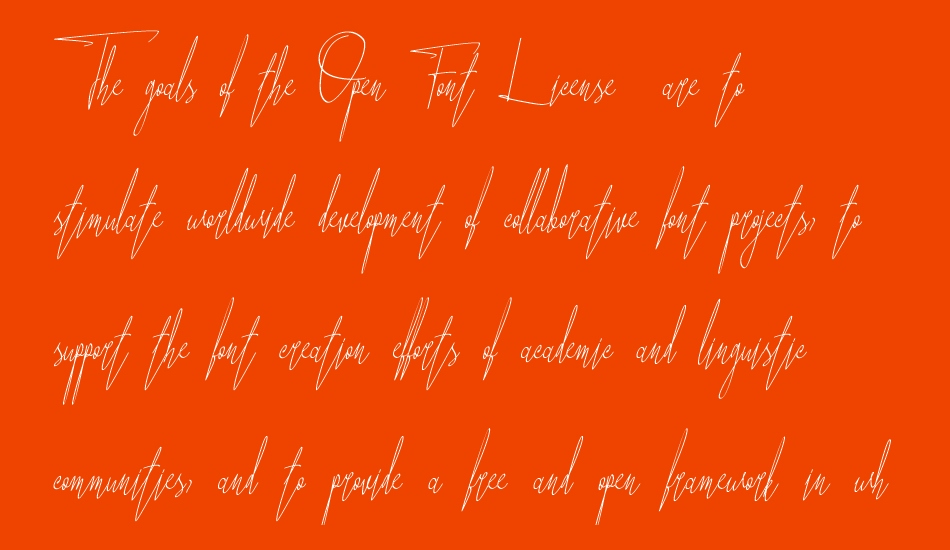 The goals of the Open Font License are to
stimulate worldwide development of collaborative font projects, to
support the font creation efforts of academic and linguistic
communities, and to provide a free and open framework in wh